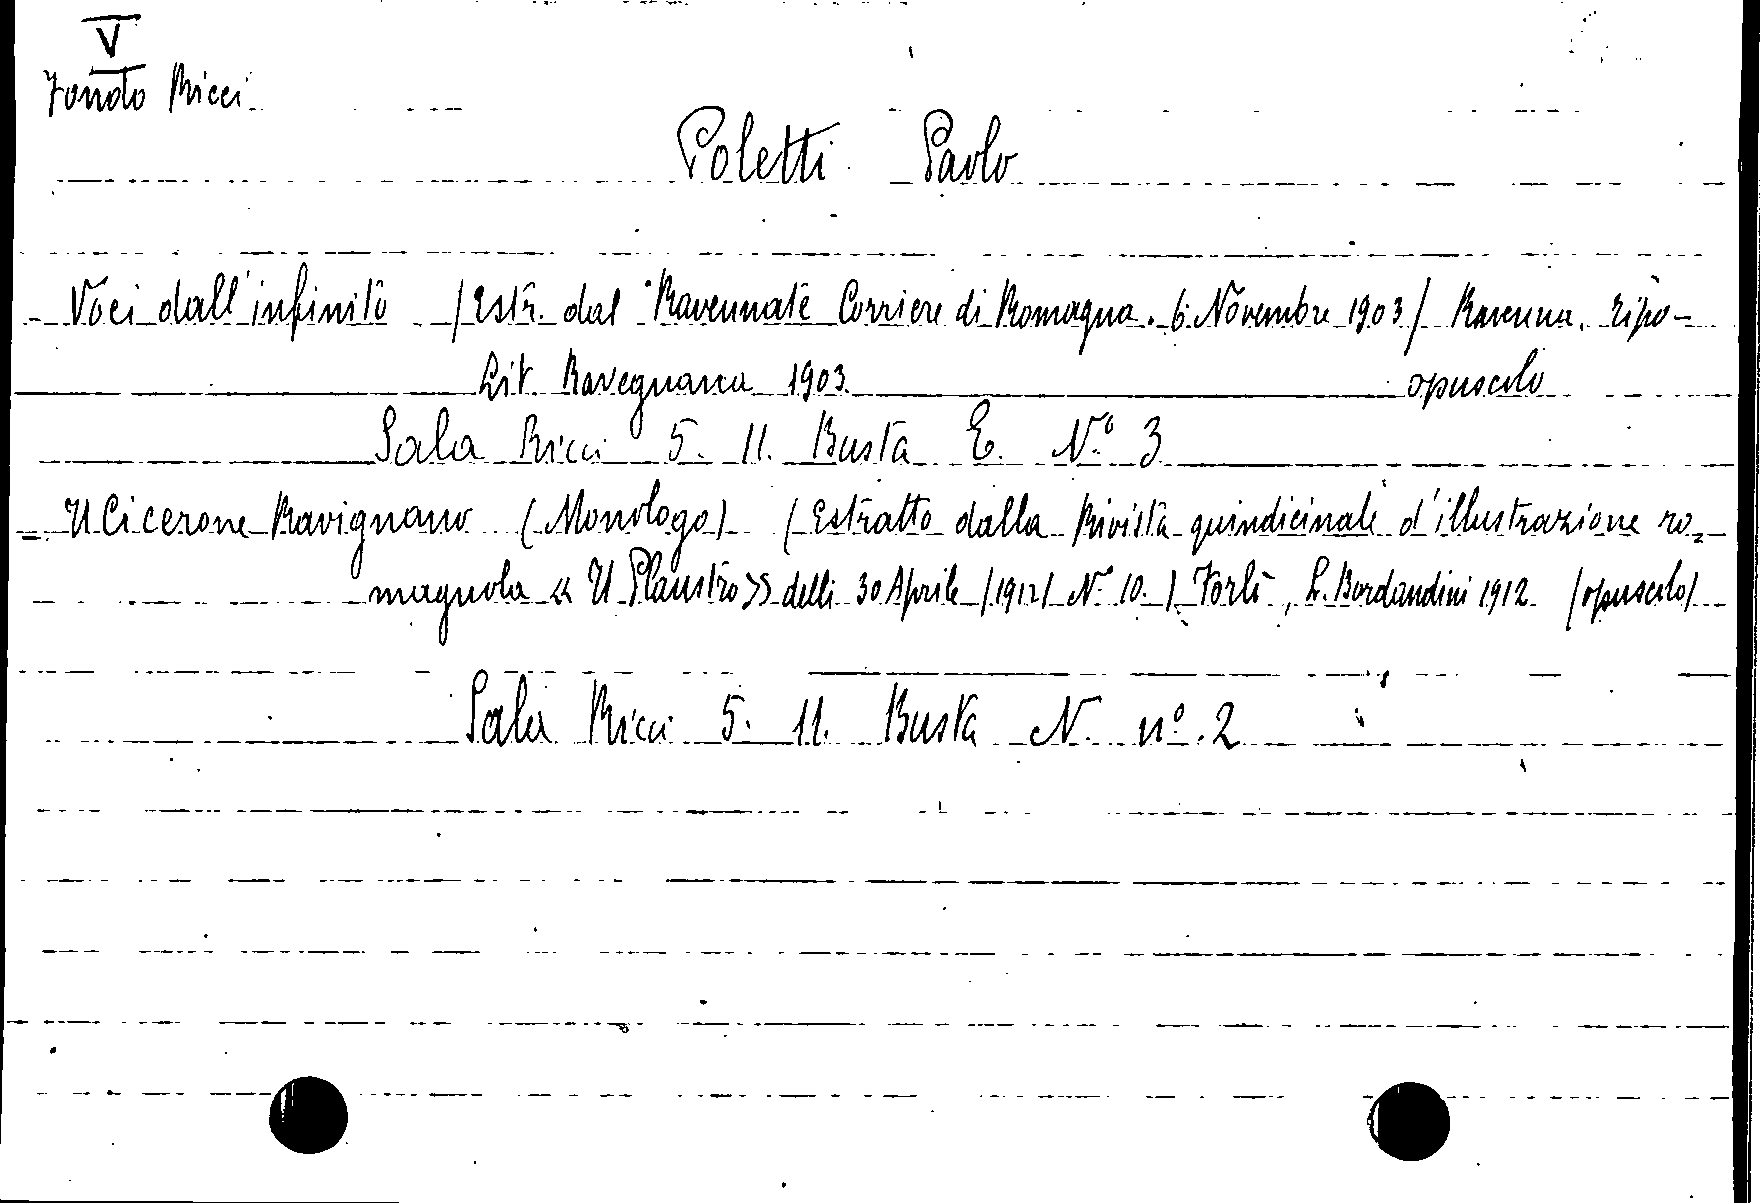 V
Fondo Ricci
Poletti Paolo
- Voci dall'infinito /Estr. dal "Ravennate Corriere di Romagna. 6 Novembre 1903/ Ravenna. Tipo-
Lit. Ravegnana 1903. opuscolo
Sala Ricci 5. 11. Busta E. N.º 3
- Il Cicerone Ravignano (Monologo) (Estratto dalla Rivista quindicinale d'illustrazione ro-
magnola « Il Plaustro» delli 30 Aprile /1912/ Nº 10.) Forlì, L. Bordandini 1912 /opuscolo/
Sala Ricci 5. 11. Busta N. nº. 2